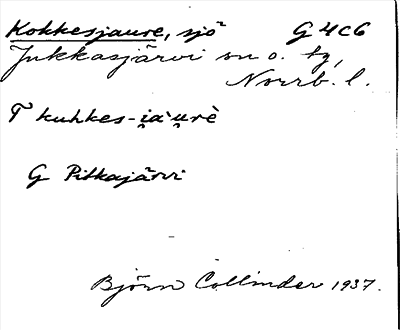 Kokkesjaure, sjö G4c6
Jukkasjärvi sn o. tg,
Norrb. l.
T kuhkes-i̯a`u̯rè
G Pitkajärvi
Björn Collinder 1937.